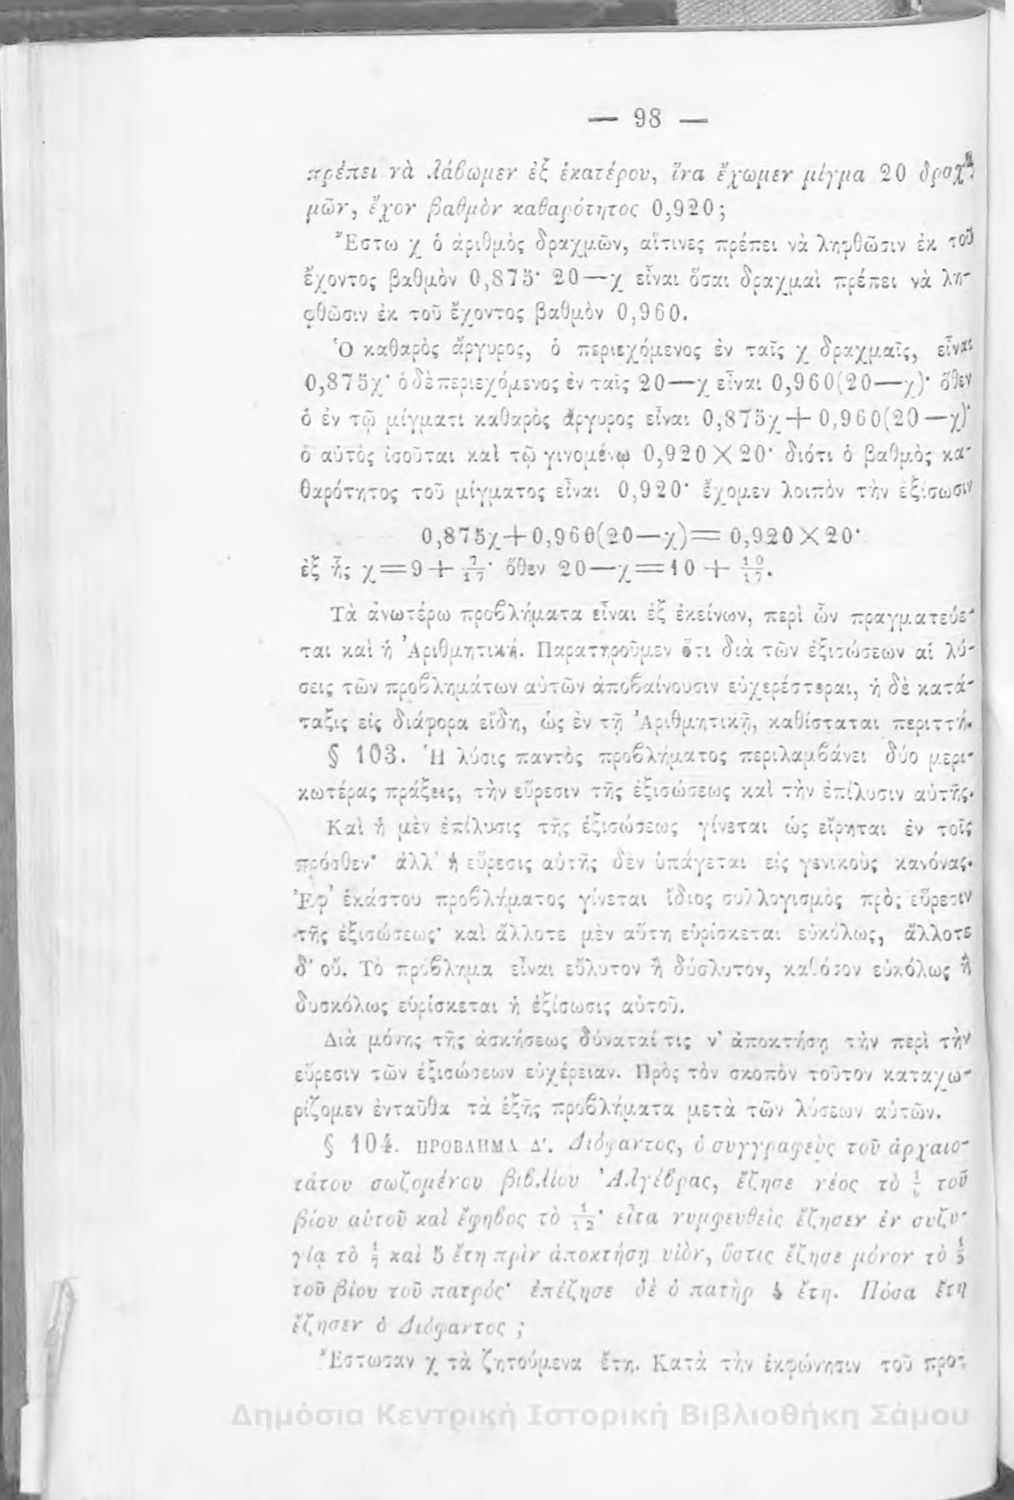 — 98 —
πρέπει νὰ λάβωμεν ἐξ ἑκατέρου, ἵνα ἔχωμεν μίγμα 20 δραχ-
μῶν, ἔχον βαθμὸν καθαρότητος 0,920;
Ἔστω χ ὁ ἀριθμὸς δραχμῶν, αἵτινες πρέπει νὰ ληφθῶσιν ἐκ τοῦ
ἔχοντος βαθμὸν 0,875· 20—χ εἶναι ὅσαι δραχμαὶ πρέπει νὰ λη-
φθῶσιν ἐκ τοῦ ἔχοντος βαθμὸν 0,960.
Ὁ καθαρὸς ἄργυρος, ὁ περιεχόμενος ἐν ταῖς χ δραχμαῖς, εἶναι
0,875χ· ὁ δὲ περιεχόμενος ἐν ταῖς 20—χ εἶναι 0,960(20—χ)· ὅθεν
ὁ ἐν τῷ μίγματι καθαρὸς ἄργυρος εἶναι 0,875χ+0,960(20—χ)·
ὁ αὐτὸς ἰσοῦται καὶ τῷ γινομένῳ 0,920×20· διότι ὁ βαθμὸς κα-
θαρότητος τοῦ μίγματος εἶναι 0,920· ἔχομεν λοιπὸν τὴν ἐξίσωσιν
0,875χ+0,960(20—χ)=0,920×20·
ἐξ ἧς χ=9+7/17· ὅθεν 20—χ=10+10/17.
Τὰ ἀνωτέρω προβλήματα εἶναι ἐξ ἐκείνων, περὶ ὧν πραγματεύε-
ται καὶ ἡ Ἀριθμητική. Παρατηροῦμεν ὅτι διὰ τῶν ἐξισώσεων αἱ λύ-
σεις τῶν προβλημάτων αὐτῶν ἀποβαίνουσιν εὐχερέστεραι, ἡ δὲ κατά-
ταξις εἰς διάφορα εἴδη, ὡς ἐν τῇ Ἀριθμητικῇ, καθίσταται περιττή.
§ 103. Ἡ λύσις παντὸς προβλήματος περιλαμβάνει δύο μερι-
κωτέρας πράξεις, τὴν εὕρεσιν τῆς ἐξισώσεως καὶ τὴν ἐπίλυσιν αὐτῆς.
Καὶ ἡ μὲν ἐπίλυσις τῆς ἐξισώσεως γίνεται ὡς εἴρηται ἐν τοῖς
πρόσθεν· ἀλλ' ἡ εὕρεσις αὐτῆς δὲν ὑπάγεται εἰς γενικοὺς κανόνας.
Ἐφ' ἑκάστου προβλήματος γίνεται ἴδιος συλλογισμὸς πρὸς εὕρεσιν
τῆς ἐξισώσεως· καὶ ἄλλοτε μὲν αὕτη εὑρίσκεται εὐκόλως, ἄλλοτε
δ' οὔ. Τὸ πρόβλημα εἶναι εὔλυτον ἢ δύσλυτον, καθόσον εὐκόλως ἢ
δυσκόλως εὑρίσκεται ἡ ἐξίσωσις αὐτοῦ.
Διὰ μόνης τῆς ἀσκήσεως δύναταί τις ν' ἀποκτήσῃ τὴν περὶ τὴν
εὕρεσιν τῶν ἐξισώσεων εὐχέρειαν. Πρὸς τὸν σκοπὸν τοῦτον καταχω-
ρίζομεν ἐνταῦθα τὰ ἑξῆς προβλήματα μετὰ τῶν λύσεων αὐτῶν.
§ 104. ΠΡΟΒΛΗΜΑ Δ'. Διόφαντος, ὁ συγγραφεὺς τοῦ ἀρχαιο-
τάτου σωζομένου βιβλίου Ἀλγέβρας, ἔζησε νέος τὸ 1/6 τοῦ
βίου αὐτοῦ καὶ ἔφηβος τὸ 1/12· εἶτα νυμφευθεὶς ἔζησεν ἐν συζυ-
γίᾳ τὸ 1/7 καὶ 5 ἔτη πρὶν ἀποκτήσῃ υἱὸν, ὅστις ἔζησε μόνον τὸ 1/2
τοῦ βίου τοῦ πατρός· ἐπέζησε δὲ ὁ πατὴρ 4 ἔτη. Πόσα ἔτη
ἔζησεν ὁ Διόφαντος ;
Ἔστωσαν χ τὰ ζητούμενα ἔτη. Κατὰ τὴν ἐκφώνησιν τοῦ προ-
Δημόσια Κεντρική Ιστορική Βιβλιοθήκη Σάμου